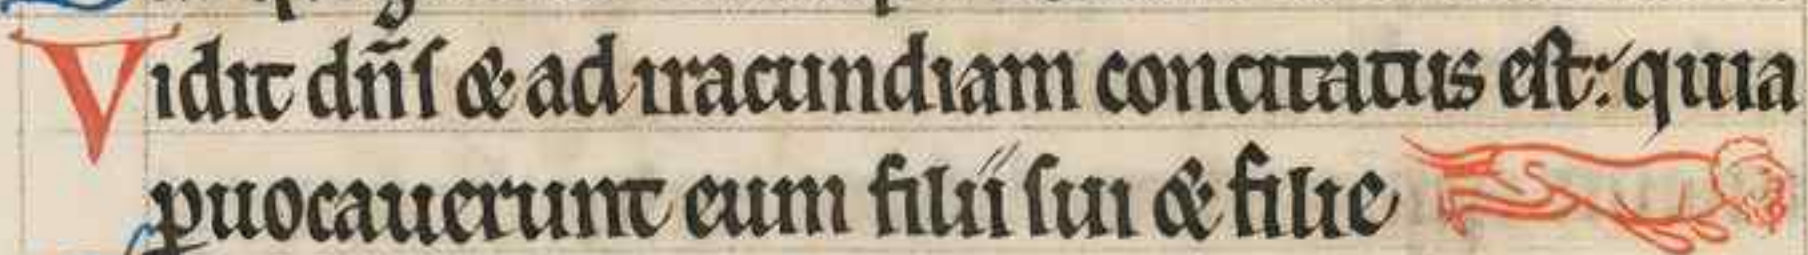 Vidit dn̄s & ad iracundiam concitatus est: quia
ꝓuocauerunt eum filii sui & filie